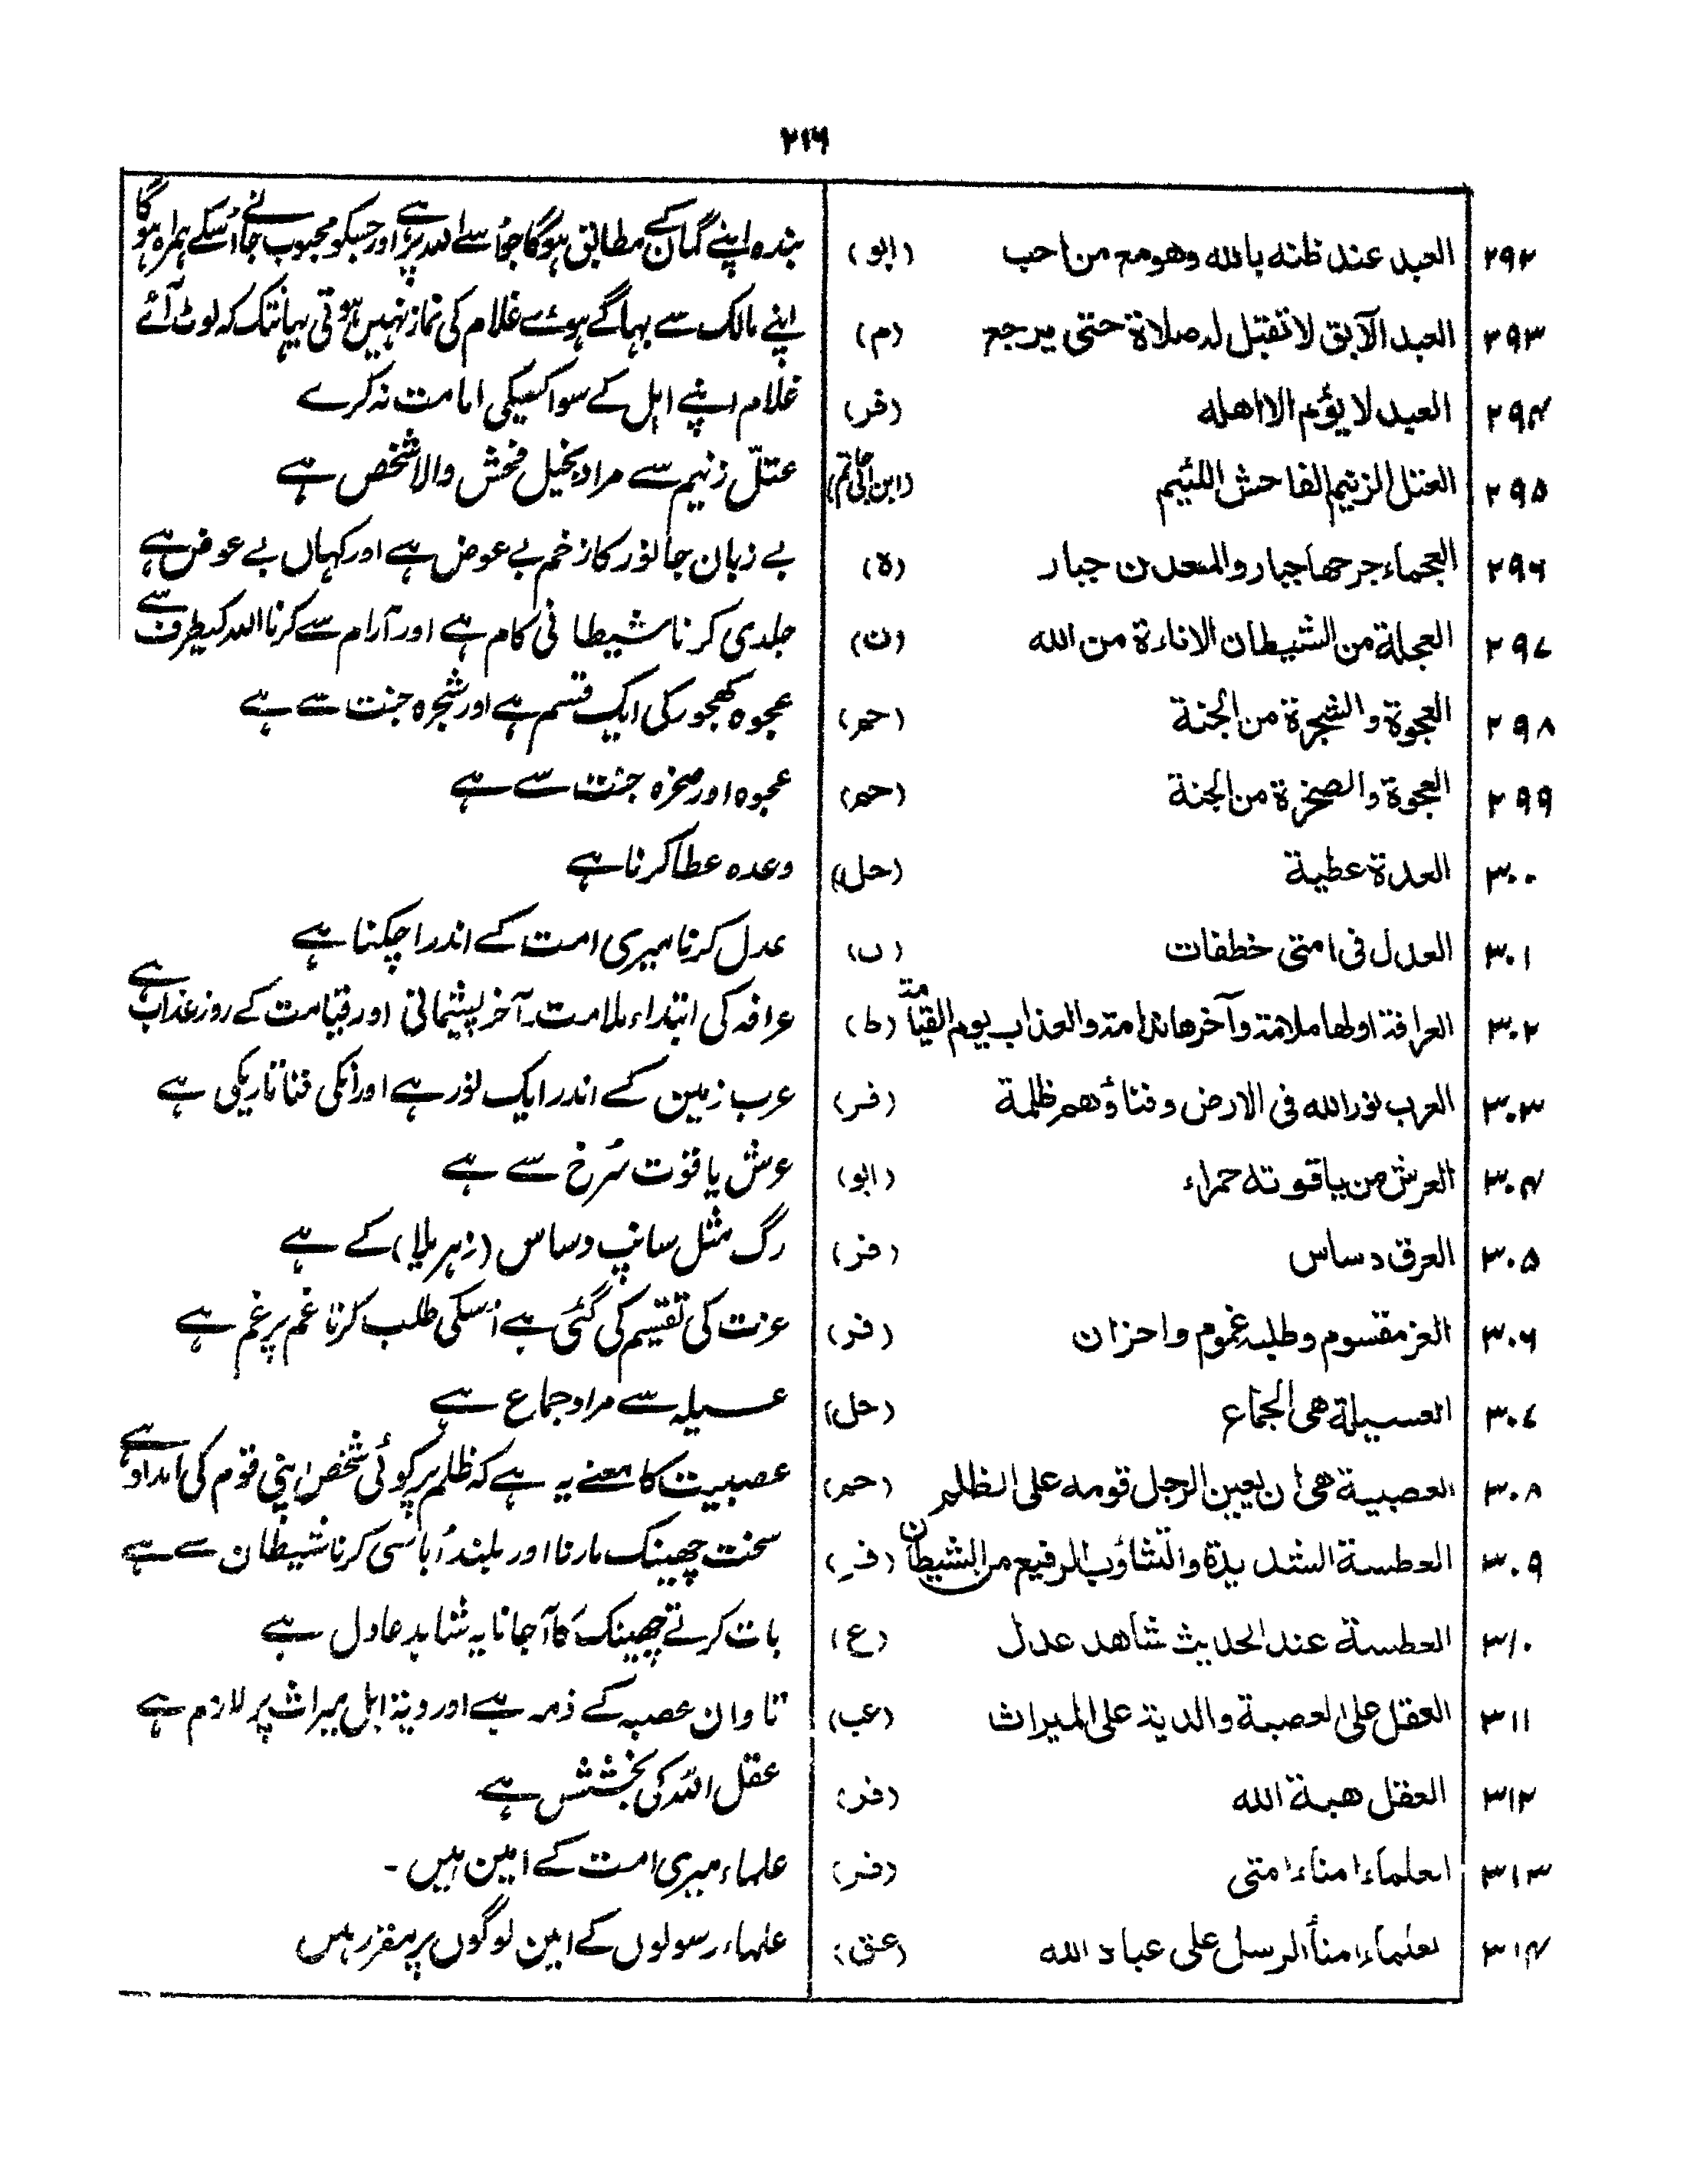 ۲۱۶
۲۹۲ العبد عند ظنه بالله وهو مع من احب (ابو) بندہ اپنے گمان کے مطابق ہوگا جو اُسے اللہ پر ہے اور جسکو محبوب جانے اُسکے ہمراہ ہوگا
۲۹۳ العبد الآبق لا تقبل له صلاة حتى يرجع (م) اپنے مالک سے بہاگے ہوئے غلام کی نماز نہیں ہوتی یہانتک کہ لوٹ آئے
۲۹۴ العبد لا يؤم الا اهله (فر) غلام اپنے اہل کے سوا کسیکی امامت نہ کرے
۲۹۵ العتل الزنيم الفاحش اللئيم (ابن ابی حاتم) عتلّ زنیم سے مراد بخیل فحش والا شخص ہے
۲۹۶ العجماء جرحها جبار والمعدن جبار (ہ) بے زبان جانور کا زخم بے عوض ہے اور کہاں بے عوض ہے
۲۹۷ العجلة من الشيطان الاناءة من الله (ن) جلدی کرنا شیطانی کام ہے اور آرام سے کرنا اللہ کیطرف سے
۲۹۸ العجوة والشجرة من الجنة (حم) عجوہ کھجور کی ایک قسم ہے اور شجرہ جنت سے ہے
۲۹۹ العجوة والصخرة من الجنة (حم) عجوہ اور صخرہ جنت سے ہے
۳۰۰ العدة عطية (حل) وعدہ عطا کرنا ہے
۳۰۱ العدل فى امتى خطفات (ں) عدل کرنا میری امت کے اندر اچکنا ہے
۳۰۲ العرافة اولها ملامة وآخرها ندامة والعذاب يوم القيامة (ط) عرافہ کی ابتداء ملامت۔ آخر پشیمانی اور قیامت کے روز عذاب ہے
۳۰۳ العرب نور الله فى الارض وفناؤهم ظلمة (فر) عرب زمین کے اندر ایک نور ہے اور اُنکی فنا تاریکی ہے
۳۰۴ العرش من ياقوتة حمراء (ابو) عرش یاقوت سُرخ سے ہے
۳۰۵ العرق دساس (فر) رگ مثل سانپ وساس (زہریلا) کے ہے
۳۰۶ العز مقسوم وطلبه غموم واحزان (فر) عزت کی تقسیم کی گئی ہے اُسکی طلب کرنا غم پر غم ہے
۳۰۷ العسيلة هى الجماع (حل) عسیلہ سے مراد جماع ہے
۳۰۸ العصبية هى ان يعين الرجل قومه على الظلم (حم) عصبیت کا معنے یہ ہے کہ ظلم پر کوئی شخص اپنی قوم کی امداد سے
۳۰۹ العطسة الشديدة والتثاؤب الرفيع من الشيطان (فر) سخت چھینک مارنا اور بلند اُباسی کرنا شیطان سے ہے
۳۱۰ العطسة عند الحديث شاهد عدل (ع) بات کرتے چھینک کا آجانا یہ شاہد عادل ہے
۳۱۱ العقل على العصبة والدية على الميراث (عب) تاوان عصبہ کے ذمہ ہے اور دیۃ اہل میراث پر لازم ہے
۳۱۲ العقل هبة الله (فر) عقل اللہ کی بخشش ہے
۳۱۳ العلماء امناء امتى (فر) علماء میری امت کے امین ہیں ۔
۳۱۴ لعلماء امنأ الرسل على عباد الله (عق) علماء رسولوں کے امین لوگوں پر مقرر ہیں